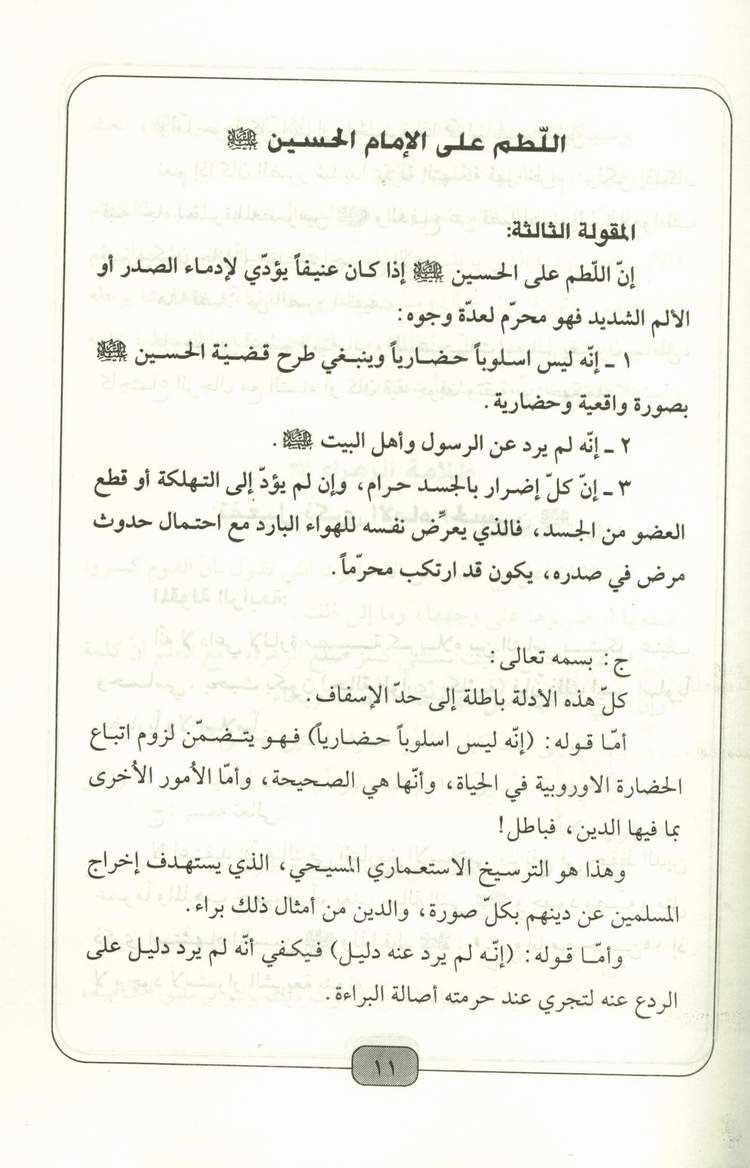 اللّطم على الإمام الحسين ﷺ
المقولة الثالثة:
إنّ اللّطم على الحسين ﷺ إذا كان عنيفاً يؤدّي لإدماء الصدر أو
الألم الشديد فهو محرّم لعدّة وجوه:
١ ـ إنّه ليس اسلوباً حضارياً وينبغي طرح قضيّة الحسين ﷺ
بصورة واقعية وحضارية.
٢ ـ إنّه لم يرد عن الرسول وأهل البيت ﷺ.
٣ ـ إنّ كلّ إضرار بالجسد حرام، وإن لم يؤدّ إلى التهلكة أو قطع
العضو من الجسد، فالذي يعرِّض نفسه للهواء البارد مع احتمال حدوث
مرض في صدره، يكون قد ارتكب محرّماً.
ج: بسمه تعالى:
كلّ هذه الأدلة باطلة إلى حدّ الإسفاف.
أمّا قوله: (إنّه ليس اسلوباً حضارياً) فهو يتضمّن لزوم اتباع
الحضارة الاوروبية في الحياة، وأنّها هي الصحيحة، وأمّا الأمور الأخرى
بما فيها الدين، فباطل!
وهذا هو الترسيخ الاستعماري المسيحي، الذي يستهدف إخراج
المسلمين عن دينهم بكلّ صورة، والدين من أمثال ذلك براء.
وأمّا قوله: (إنّه لم يرد عنه دليل) فيكفي أنّه لم يرد دليل على
الردع عنه لتجري عند حرمته أصالة البراءة.
١١